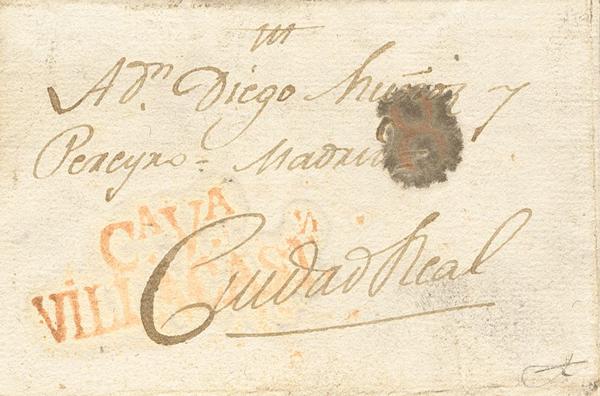 A dn. Diego Muñoz y
Pereyro = Madrid
8
CAVA
VILLACASN
Ciudad Real